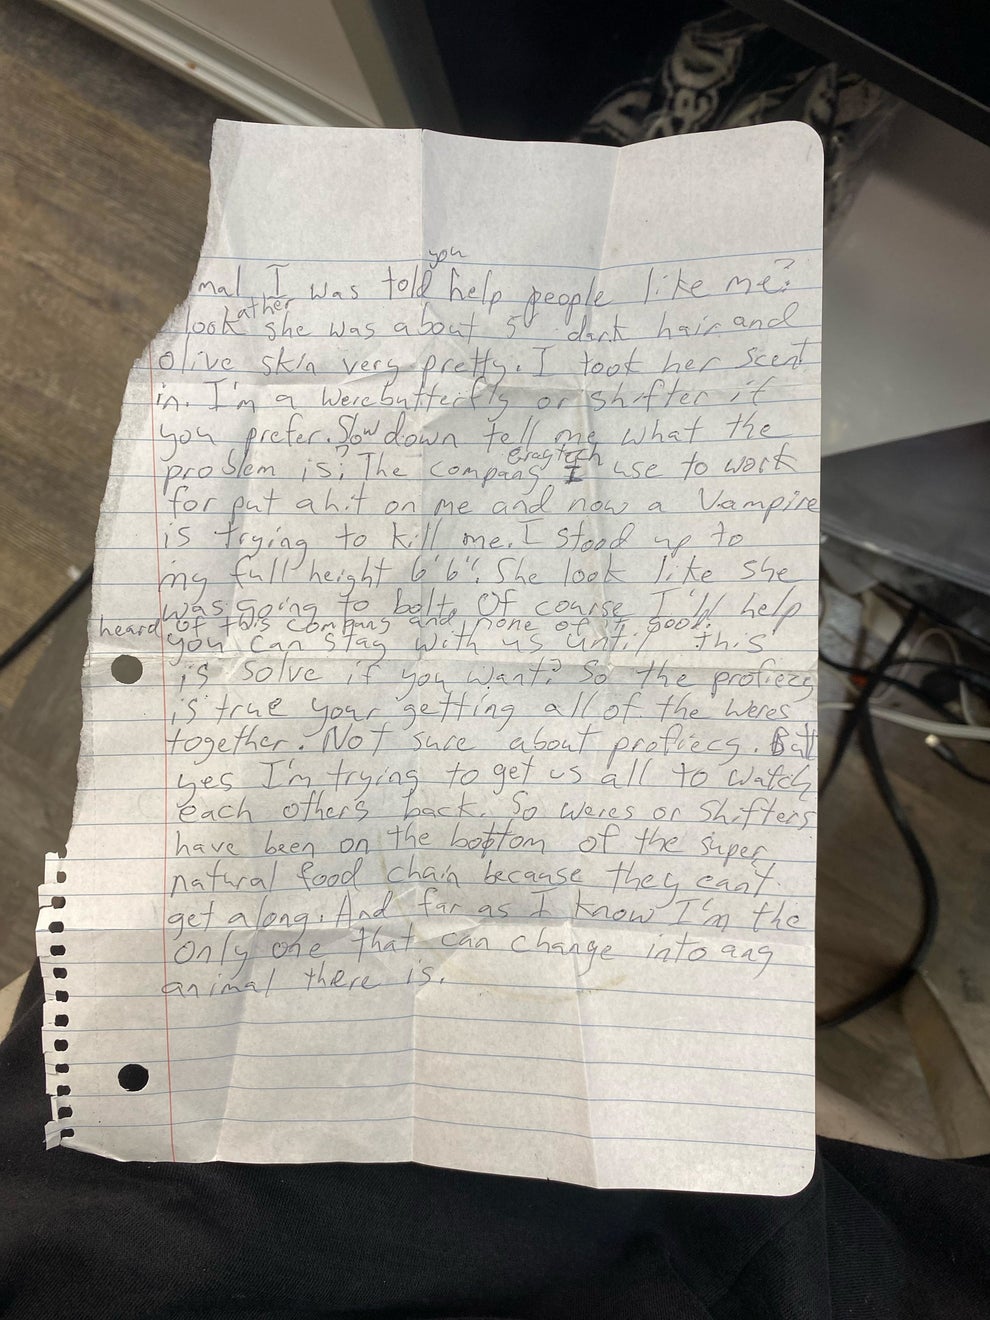 you
mal I was told help people like me?
ather
look she was about 5' dark hair and
olive skin very pretty. I took her scent
in. I'm a werebutterfly or shifter if
you prefer. Slow down tell me what the
problem is? The company I use to work
for put a hit on me and now a Vampire
is trying to kill me. I stood up to
my full height 6'6". She look like she
was going to bolt. Of course I'll help
heard of this company and none of it good.
you can stay with us until this
is solve if you want? So the profiecy
is true your getting all of the weres
together. Not sure about profiecy. But
yes I'm trying to get us all to watch
each others back. So weres or shifters
have been on the bottom of the super
natural food chain because they can't
get along. And far as I know I'm the
only one that can change into any
animal there is.